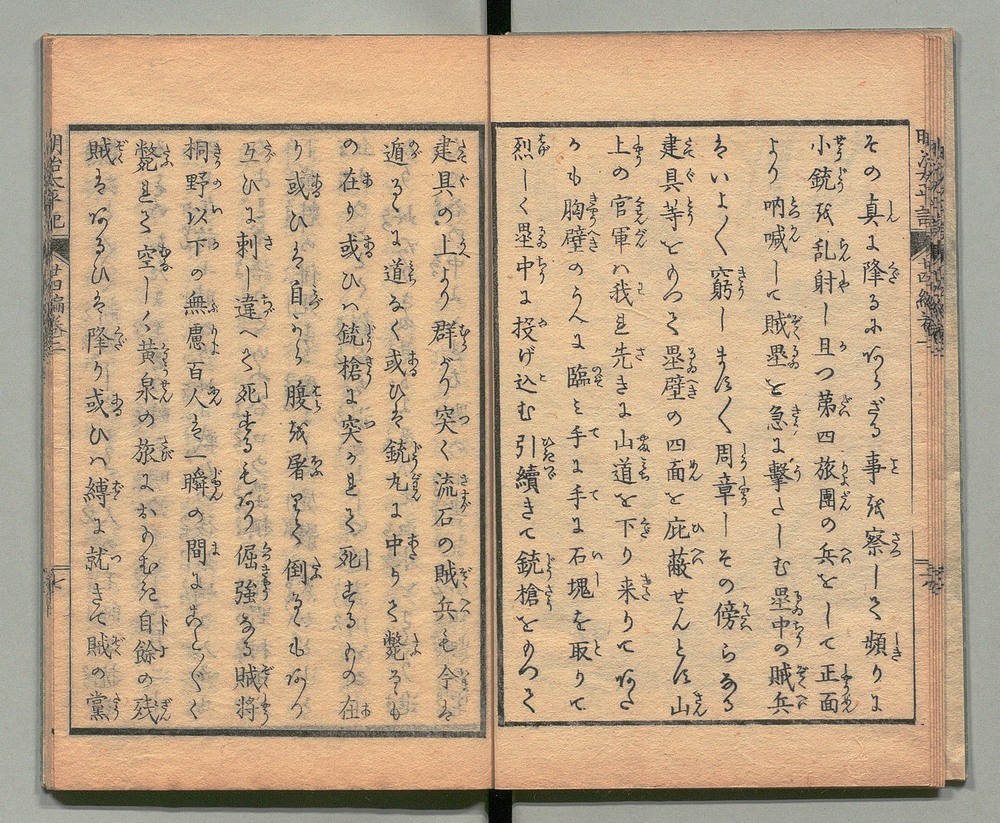 その真に降るにあらざる事を察して頻りに
小銃を乱射し且つ第四旅團の兵をして正面
より吶喊して賊塁を急に撃たしむ塁中の賊兵
はいよ〳〵窮します〳〵周章しその傍らなる
建具等をもつて塁壁の四面を庇蔽せんとす山
上の官軍ハ我れ先きに山道を下り来りて
も胸壁のうへに臨み手に手に石塊を取りて
烈しく塁中に投げ込む引續きて銃槍をもつて
建具の上より群がり突く流石の賊兵も今は
遁るゝに道なく或ひは銃丸に中りて斃るゝも
の在り或ひハ銃槍に突かれて死するもの在
り或ひは自から腹を屠りて倒るゝもあり
互ひに刺し違へて死するもあり倔強なる賊将
桐野以下の無慮百人は一瞬の間にこと〴〵く
斃れて空しく黄泉の旅におもむき自餘の残
賊はあるひは降り或ひハ縛に就きて賊の黨
明治太平記
廿四編巻之二
七